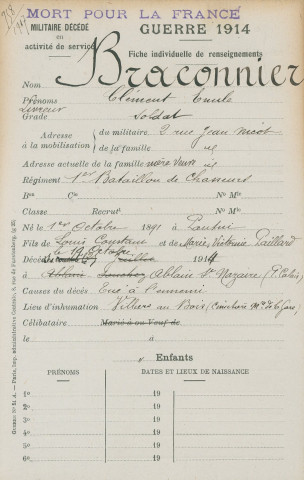 918
MORT POUR LA FRANCE
MILITAIRE DÉCÉDÉ
en
activité de service
GUERRE 1914
Fiche individuelle de renseignements
Nom Braconnier
Prénoms Clément Emile
Grade Soldat
Adresse à la mobilisation du militaire 2 rue Jean Nicot
de la famille id
Adresse actuelle de la famille mère Vve id
Régiment 1er Bataillon de Chasseurs
Bon Cie No Mle
Classe Recrut No Mle
Né le 1er Octobre 1891 à Pantin
Fils de Louis Constant et de Marie Victorine Paillard
le 19 Octobre
Décédé 1914
à Ablain St Nazaire (P. Calais)
Causes du décès Tué à l'ennemi
Lieu d'inhumation Villers au Bois (Cimetière Mre de la Gare)
Célibataire Marié à ou Veuf de
Enfants
PRÉNOMS DATES ET LIEUX DE NAISSANCE
1o 19
2o 19
3o 19
4o 19
5o 19
6o 19